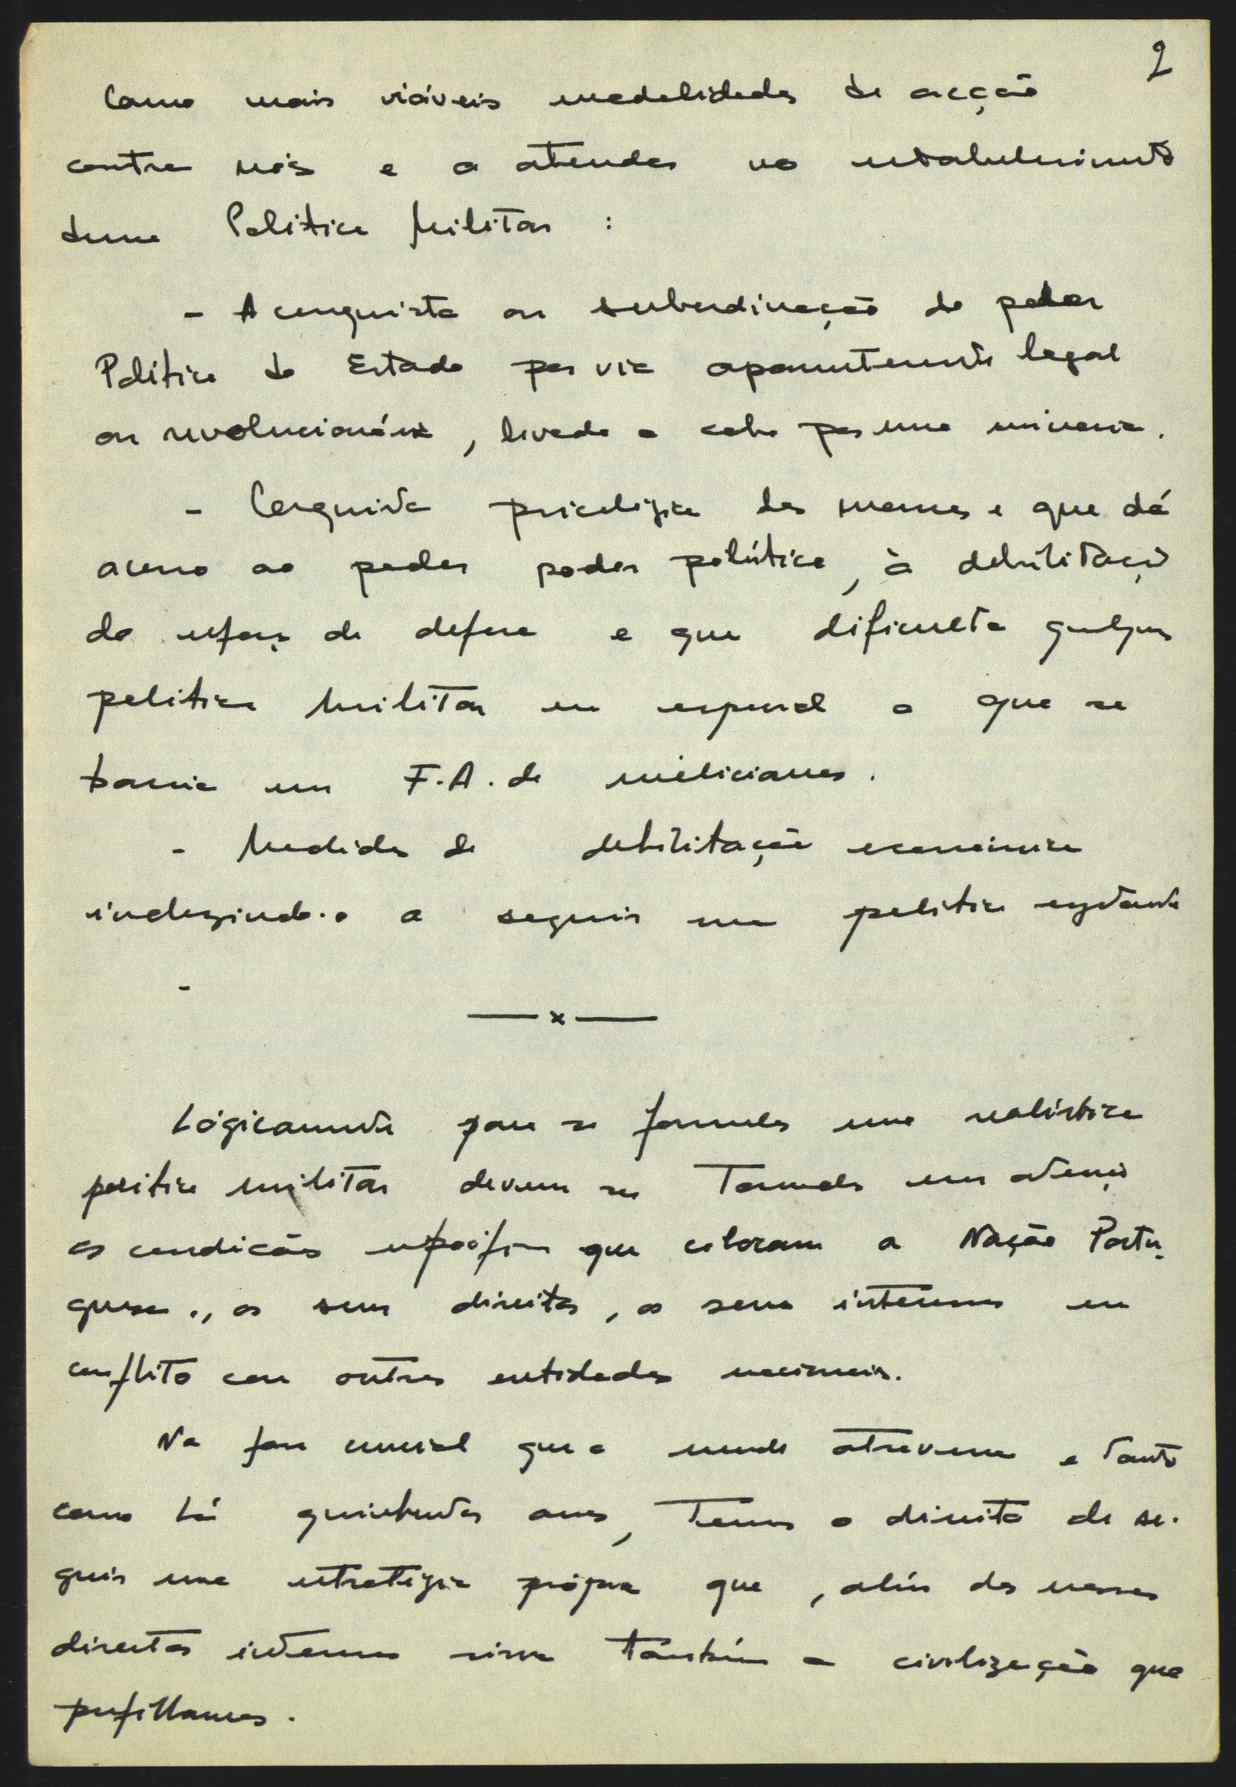 2
Como mais viáveis modalidades de acção
contra nós e a atender no estabelecimento
duma Politica Militar :
- A conquista ou subordinação do poder
Politico do Estado por via aparentemente legal
ou revolucionária, levada a cabo por uma minoria.
- Conquista psicológica das massas e que dá
acesso ao poder poder politico, à debilitação
do esforço de defesa e que dificulta qualquer
politica militar em especial a que se
baseia em F.A. de milicianos.
- Medidas de debilitação economica
a seguir uma politica
-
—— x ——
Lógicamente para se formular uma realística
politica militar devem ser tomadas em atenção
as condicões que colocam a Nação Portu-
guesa., os seus direitos, os seus interesses em
conflito com outras entidades nacionais.
Na fase crucial que o mundo atravessa e tanto
como há quinhentos anos, temos o direito de se-
guir uma estratégia própria que, além dos nossos
direitos interesses sirva também a civilização que
perfilhamos.